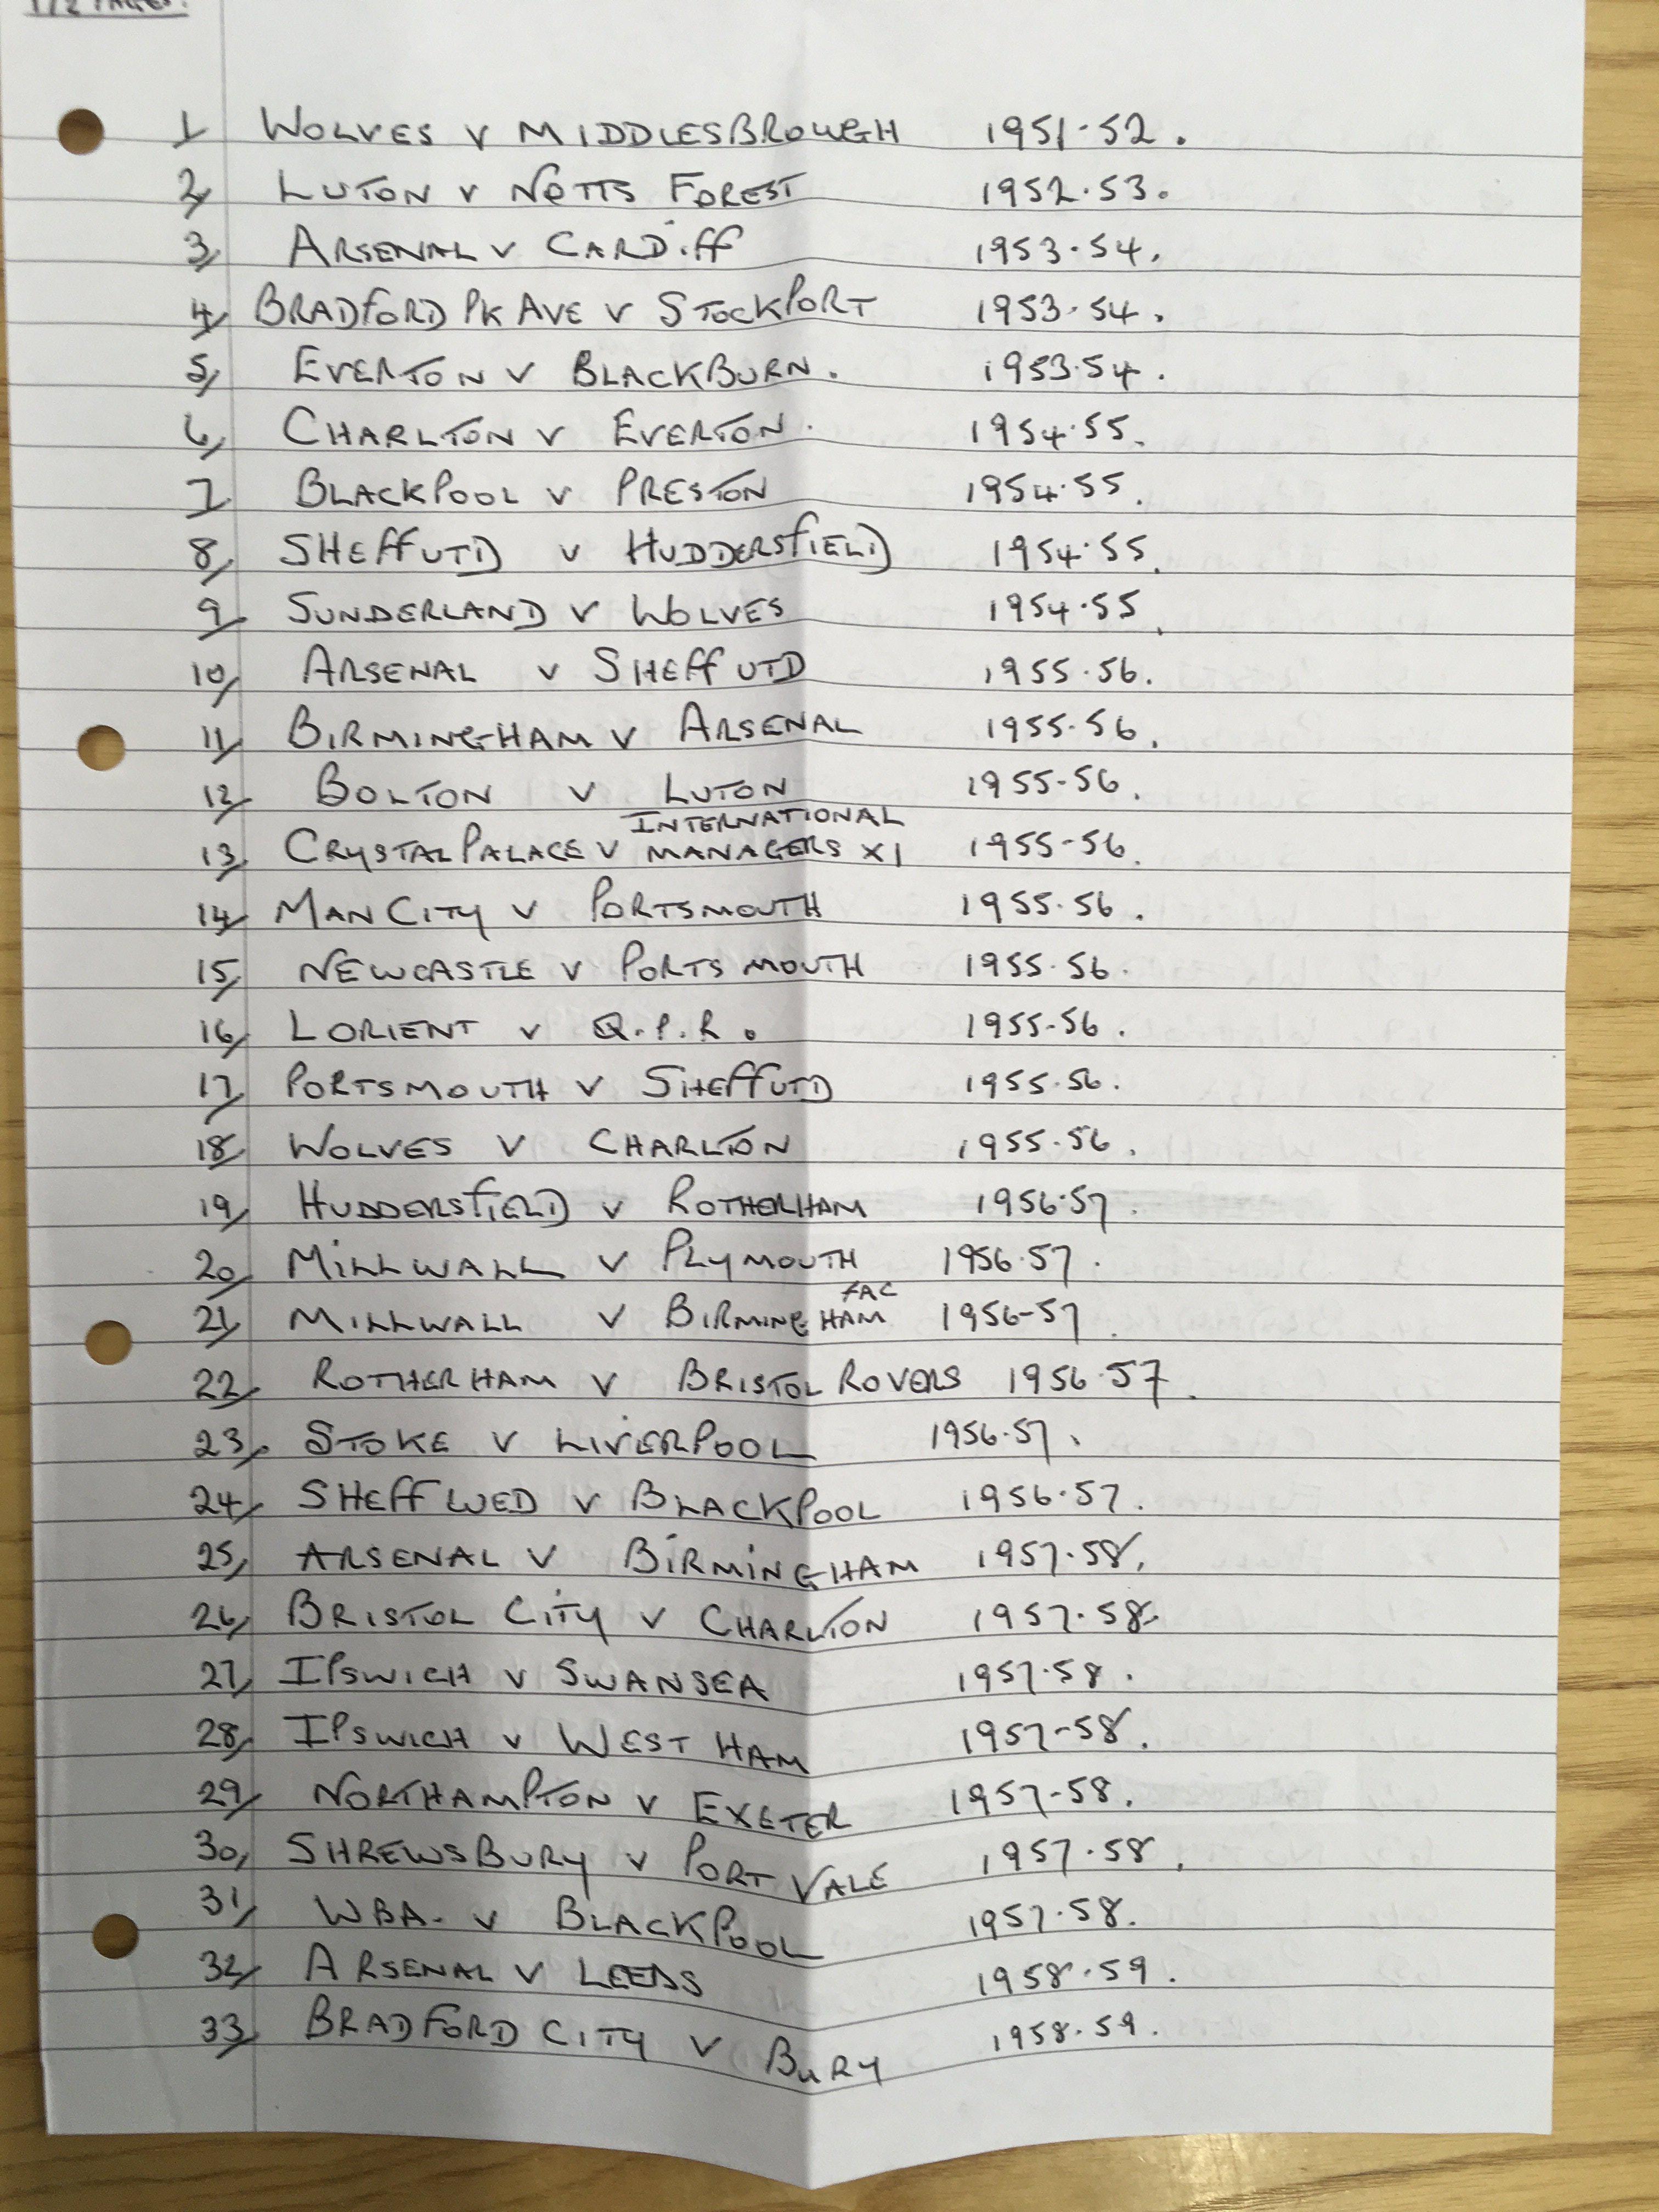 1/ WOLVES V MIDDLESBROUGH 1951-52.
2/ LUTON V NOTTS FOREST 1952.53.
3/ ARSENAL V CARDiff 1953.54.
4/ BRADfORD PK AVE V STOCKPORT 1953.54.
5/ EVERTON V BLACKBURN. 1953.54.
6/ CHARLTON V EVERTON. 1954.55.
7/ BLACKPOOL V PRESTON 1954.55.
8/ SHEff UTD V HUDDERSfIELD 1954.55.
9/ SUNDERLAND V WOLVES 1954.55.
10/ ARSENAL V SHEff UTD 1955.56.
11/ BIRMINGHAM V ARSENAL 1955.56.
12/ BOLTON V LUTON 1955-56.
INTERNATIONAL
13/ CRYSTAL PALACE V MANAGERS XI 1955-56.
14/ MAN CITY V PORTSMOUTH 1955.56.
15/ NEWCASTLE V PORTSMOUTH 1955.56.
16/ LORIENT V Q.P.R. 1955-56.
17/ PORTSMOUTH V SHEff UTD 1955.56.
18/ WOLVES V CHARLTON 1955.56.
19/ HUDDERSfIELD V ROTHERHAM 1956.57.
20/ MiLLWALL V PLYMOUTH 1956.57.
fAC
21/ MILLWALL V BIRMINGHAM 1956-57.
22/ ROTHERHAM V BRISTOL ROVERS 1956.57.
23/. STOKE V LiVERPOOL 1956.57.
24/ SHEff WED V BLACKPOOL 1956.57.
25/ ARSENAL V BiRMINGHAM 1957.58.
26/ BRISTOL CiTY V CHARLTON 1957.58.
27/ IPSWICH V SWANSEA 1957.58.
28/ IPSWICH V WEST HAM 1957-58.
29/ NORTHAMPTON V EXETER 1957-58.
30/ SHREWSBURY V PORT VALE 1957.58.
31/ WBA. V BLACKPOOL 1957.58.
32/ ARSENAL V LEEDS 1958.59.
33/ BRADFORD CITY V BURY 1958.59.